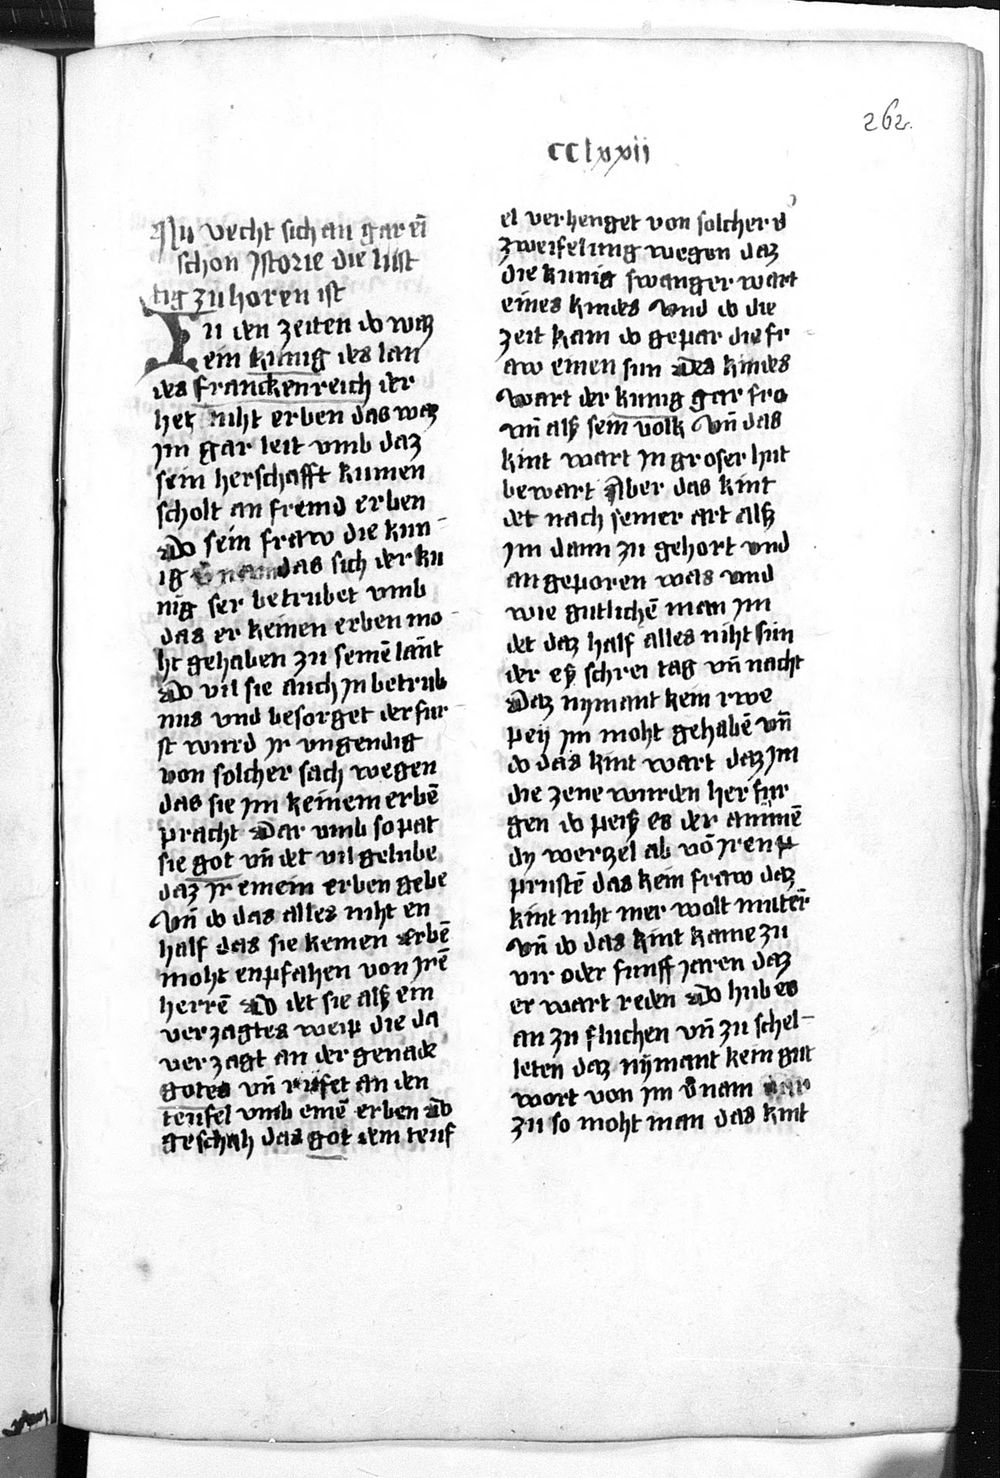 262.
CClxxii
Nu vecht sich an gar eī
schon Jstorie die lust
tig zu horen ist
In den zeiten do waz
ein kunig des lan
des franckenreich der
het niht erben das waz
jm gar leit vmb daz
sein herschafft kumen
scholt an fremd erben
Ado sein fraw die kun-
ig v̄nam das sich der ku
nig ser betrubet vmb
das er keinen erben mo-
ht gehaben zu seinē lānt
Ado vil sie auch Jn betrub
nus vnd besorget der fur-
st wurd jr vngendig
von solcher sach wegen
das sie jm keinem erbē
pracht Dar vmb so pat
sie got vn̄ det vil gelube
daz jr einein erben gebe
Vn̄ do das alles niht en
half das sie keinen erbē
moht enpfahen von jrē
herrē Ado det sie alß ein
verzagtes weip die da
verzagt an der genade
gotes vn̄ rufet an den
teufel vmb einē erben Ado
geschah das got dem teuf
el verhenget von solcher d
zweifelung wegen daz
die kunig swanger wart
eines kindes vnd do die
zeit kam do gepar die fr
aw einen sun Des kindes
wart der kunig gar fro
vn̄ alß sein volk Vn̄ das
kint wart Jn groser hut
bewart Aber das kint
det nach seiner art alß
jm dann zu gehort vnd
an geporen was vnd
wie gutlichē man jm
det daz half alles niht sun
der eß schrei tag vn̄ nacht
Daz nymant kein rwe
peij jm moht gehabē vn̄
do das kint wart daz jm
die zene wurden her fur
gen do peiß es der ammē
dy werzel ab vō jren p
prustē das kein fraw daz
kint niht mer wolt mutēr
Vn̄ do das kint kame zu
vir oder funff jaren daz
er wart reden Ado hub es
an zu fluchen vn̄ zu schel-
leten daz nymant kein gut
wort von jm v̄nam dar
zu so moht man das kint